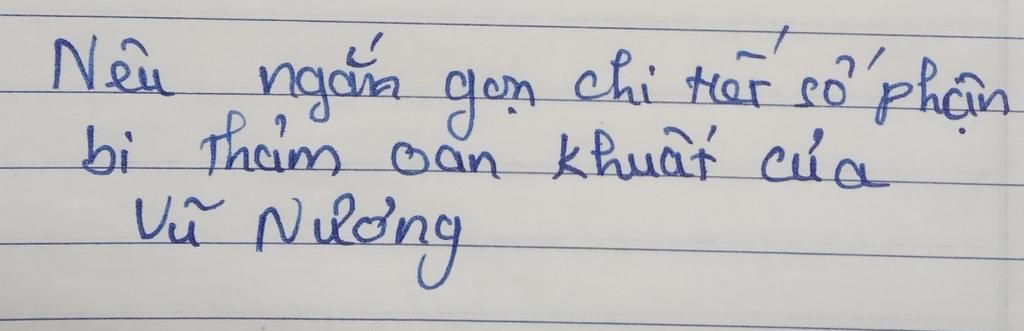 Nêu ngắn gọn chi tiết số phận
bi thảm oan khuất của
Vũ Nương